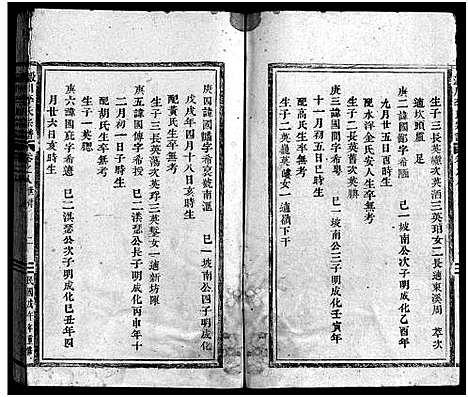 生子三長英㰖次英洒三英琄女二長適東溪周 萃次
適坎頭盧 足
庚二諱國鄙字希隱 已一坡南公次子明成化乙酉年
九月廿五日酉時生
配水洋金氏安人生卒無考
生子二長英舊次英
庚三諱國間字希粵 已一坡南公三子明成化壬寅年
十一月初五日亥時生
配高氏生卒無考
生子三長英 女一適嶺下干
庚四諱國 字希哀號南滙 已一坡南公四子明成化
戊戌年四月十八日亥時生
配黃氏生卒無考
生子三長英蕩次英 三英 女一適新坊陳
庚五諱國傳字希授 已二淇瑟公長子明成化丙申年十
二月初一日子時生
配胡氏生卒無考
生子一英聰
庚六諱國宣字希適 已二淇瑟公次子明成化己丑年四
月廿六日亥時生
川李氏宗譜
民國戊午年重修